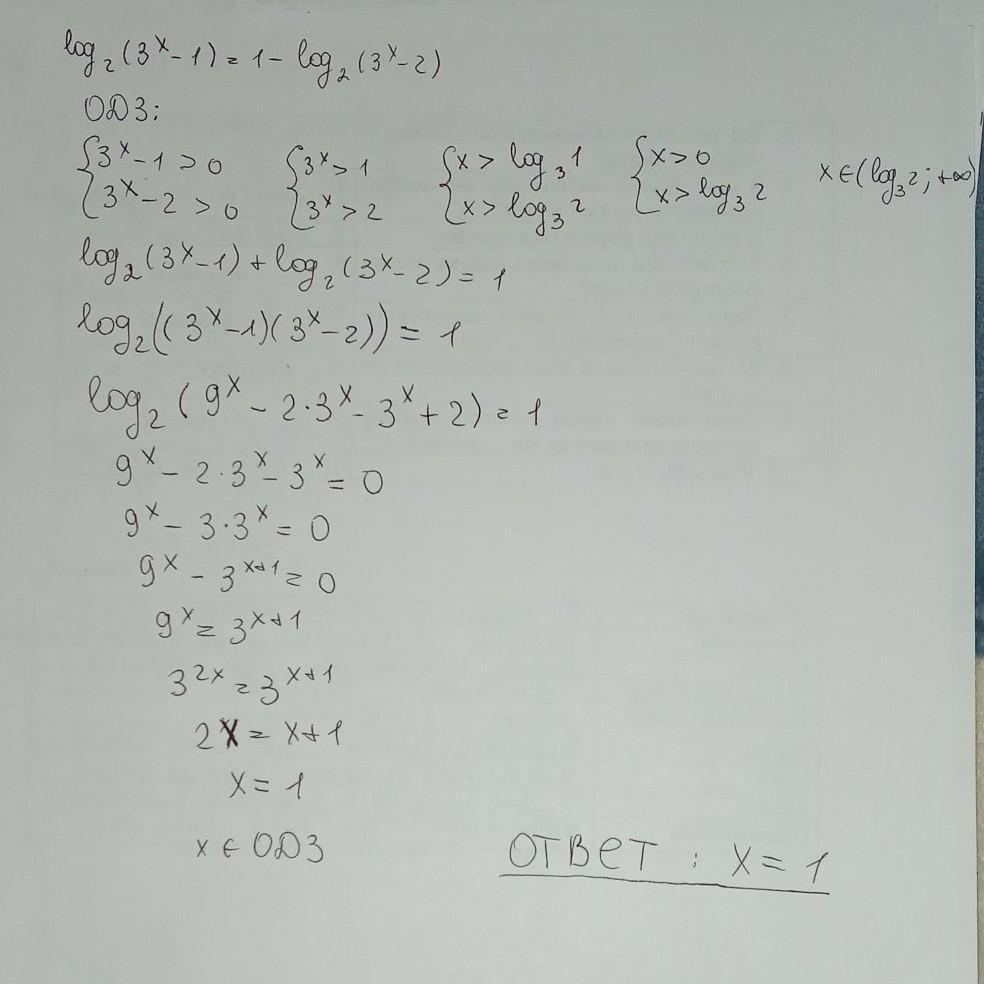 log₂(3ˣ-1) = 1 - log₂(3ˣ-2)
ОДЗ:
{3ˣ-1 > 0 {3ˣ > 1 {x > log₃1 {x > 0 x∈(log₃2; +∞)
{3ˣ-2 > 0 {3ˣ > 2 {x > log₃2 {x > log₃2
log₂(3ˣ-1) + log₂(3ˣ-2) = 1
log₂((3ˣ-1)(3ˣ-2)) = 1
log₂(9ˣ - 2·3ˣ - 3ˣ + 2) = 1
9ˣ - 2·3ˣ - 3ˣ = 0
9ˣ - 3·3ˣ = 0
9ˣ - 3ˣ⁺¹ = 0
9ˣ = 3ˣ⁺¹
3²ˣ = 3ˣ⁺¹
2x = x+1
x = 1
x ∈ ОДЗ
ОТВЕТ : x = 1